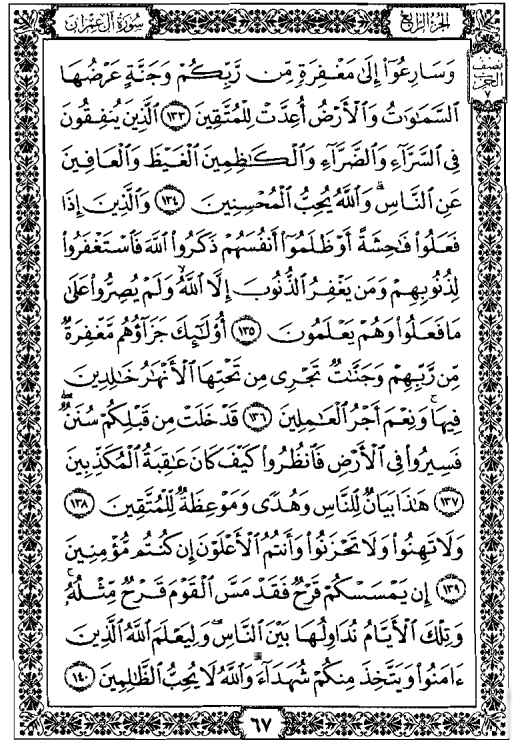 سُورَةُ آلِ عِمْرَانَ
الجُزْءُ الرَّابِعُ
نصف
الحزب
٧
وَسَارِعُوٓا۟ إِلَىٰ مَغْفِرَةٍ مِّن رَّبِّكُمْ وَجَنَّةٍ عَرْضُهَا
ٱلسَّمَٰوَٰتُ وَٱلْأَرْضُ أُعِدَّتْ لِلْمُتَّقِينَ ١٣٣ ٱلَّذِينَ يُنفِقُونَ
فِى ٱلسَّرَّآءِ وَٱلضَّرَّآءِ وَٱلْكَٰظِمِينَ ٱلْغَيْظَ وَٱلْعَافِينَ
عَنِ ٱلنَّاسِ ۗ وَٱللَّهُ يُحِبُّ ٱلْمُحْسِنِينَ ١٣٤ وَٱلَّذِينَ إِذَا
فَعَلُوا۟ فَٰحِشَةً أَوْ ظَلَمُوٓا۟ أَنفُسَهُمْ ذَكَرُوا۟ ٱللَّهَ فَٱسْتَغْفَرُوا۟
لِذُنُوبِهِمْ وَمَن يَغْفِرُ ٱلذُّنُوبَ إِلَّا ٱللَّهُ وَلَمْ يُصِرُّوا۟ عَلَىٰ
مَا فَعَلُوا۟ وَهُمْ يَعْلَمُونَ ١٣٥ أُو۟لَٰٓئِكَ جَزَآؤُهُم مَّغْفِرَةٌ
مِّن رَّبِّهِمْ وَجَنَّٰتٌ تَجْرِى مِن تَحْتِهَا ٱلْأَنْهَٰرُ خَٰلِدِينَ
فِيهَا ۚ وَنِعْمَ أَجْرُ ٱلْعَٰمِلِينَ ١٣٦ قَدْ خَلَتْ مِن قَبْلِكُمْ سُنَنٌ
فَسِيرُوا۟ فِى ٱلْأَرْضِ فَٱنظُرُوا۟ كَيْفَ كَانَ عَٰقِبَةُ ٱلْمُكَذِّبِينَ
١٣٧ هَٰذَا بَيَانٌ لِّلنَّاسِ وَهُدًى وَمَوْعِظَةٌ لِّلْمُتَّقِينَ ١٣٨
وَلَا تَهِنُوا۟ وَلَا تَحْزَنُوا۟ وَأَنتُمُ ٱلْأَعْلَوْنَ إِن كُنتُم مُّؤْمِنِينَ
١٣٩ إِن يَمْسَسْكُمْ قَرْحٌ فَقَدْ مَسَّ ٱلْقَوْمَ قَرْحٌ مِّثْلُهُۥ ۚ
وَتِلْكَ ٱلْأَيَّامُ نُدَاوِلُهَا بَيْنَ ٱلنَّاسِ وَلِيَعْلَمَ ٱللَّهُ ٱلَّذِينَ
ءَامَنُوا۟ وَيَتَّخِذَ مِنكُمْ شُهَدَآءَ ۗ وَٱللَّهُ لَا يُحِبُّ ٱلظَّٰلِمِينَ ١٤٠
٦٧